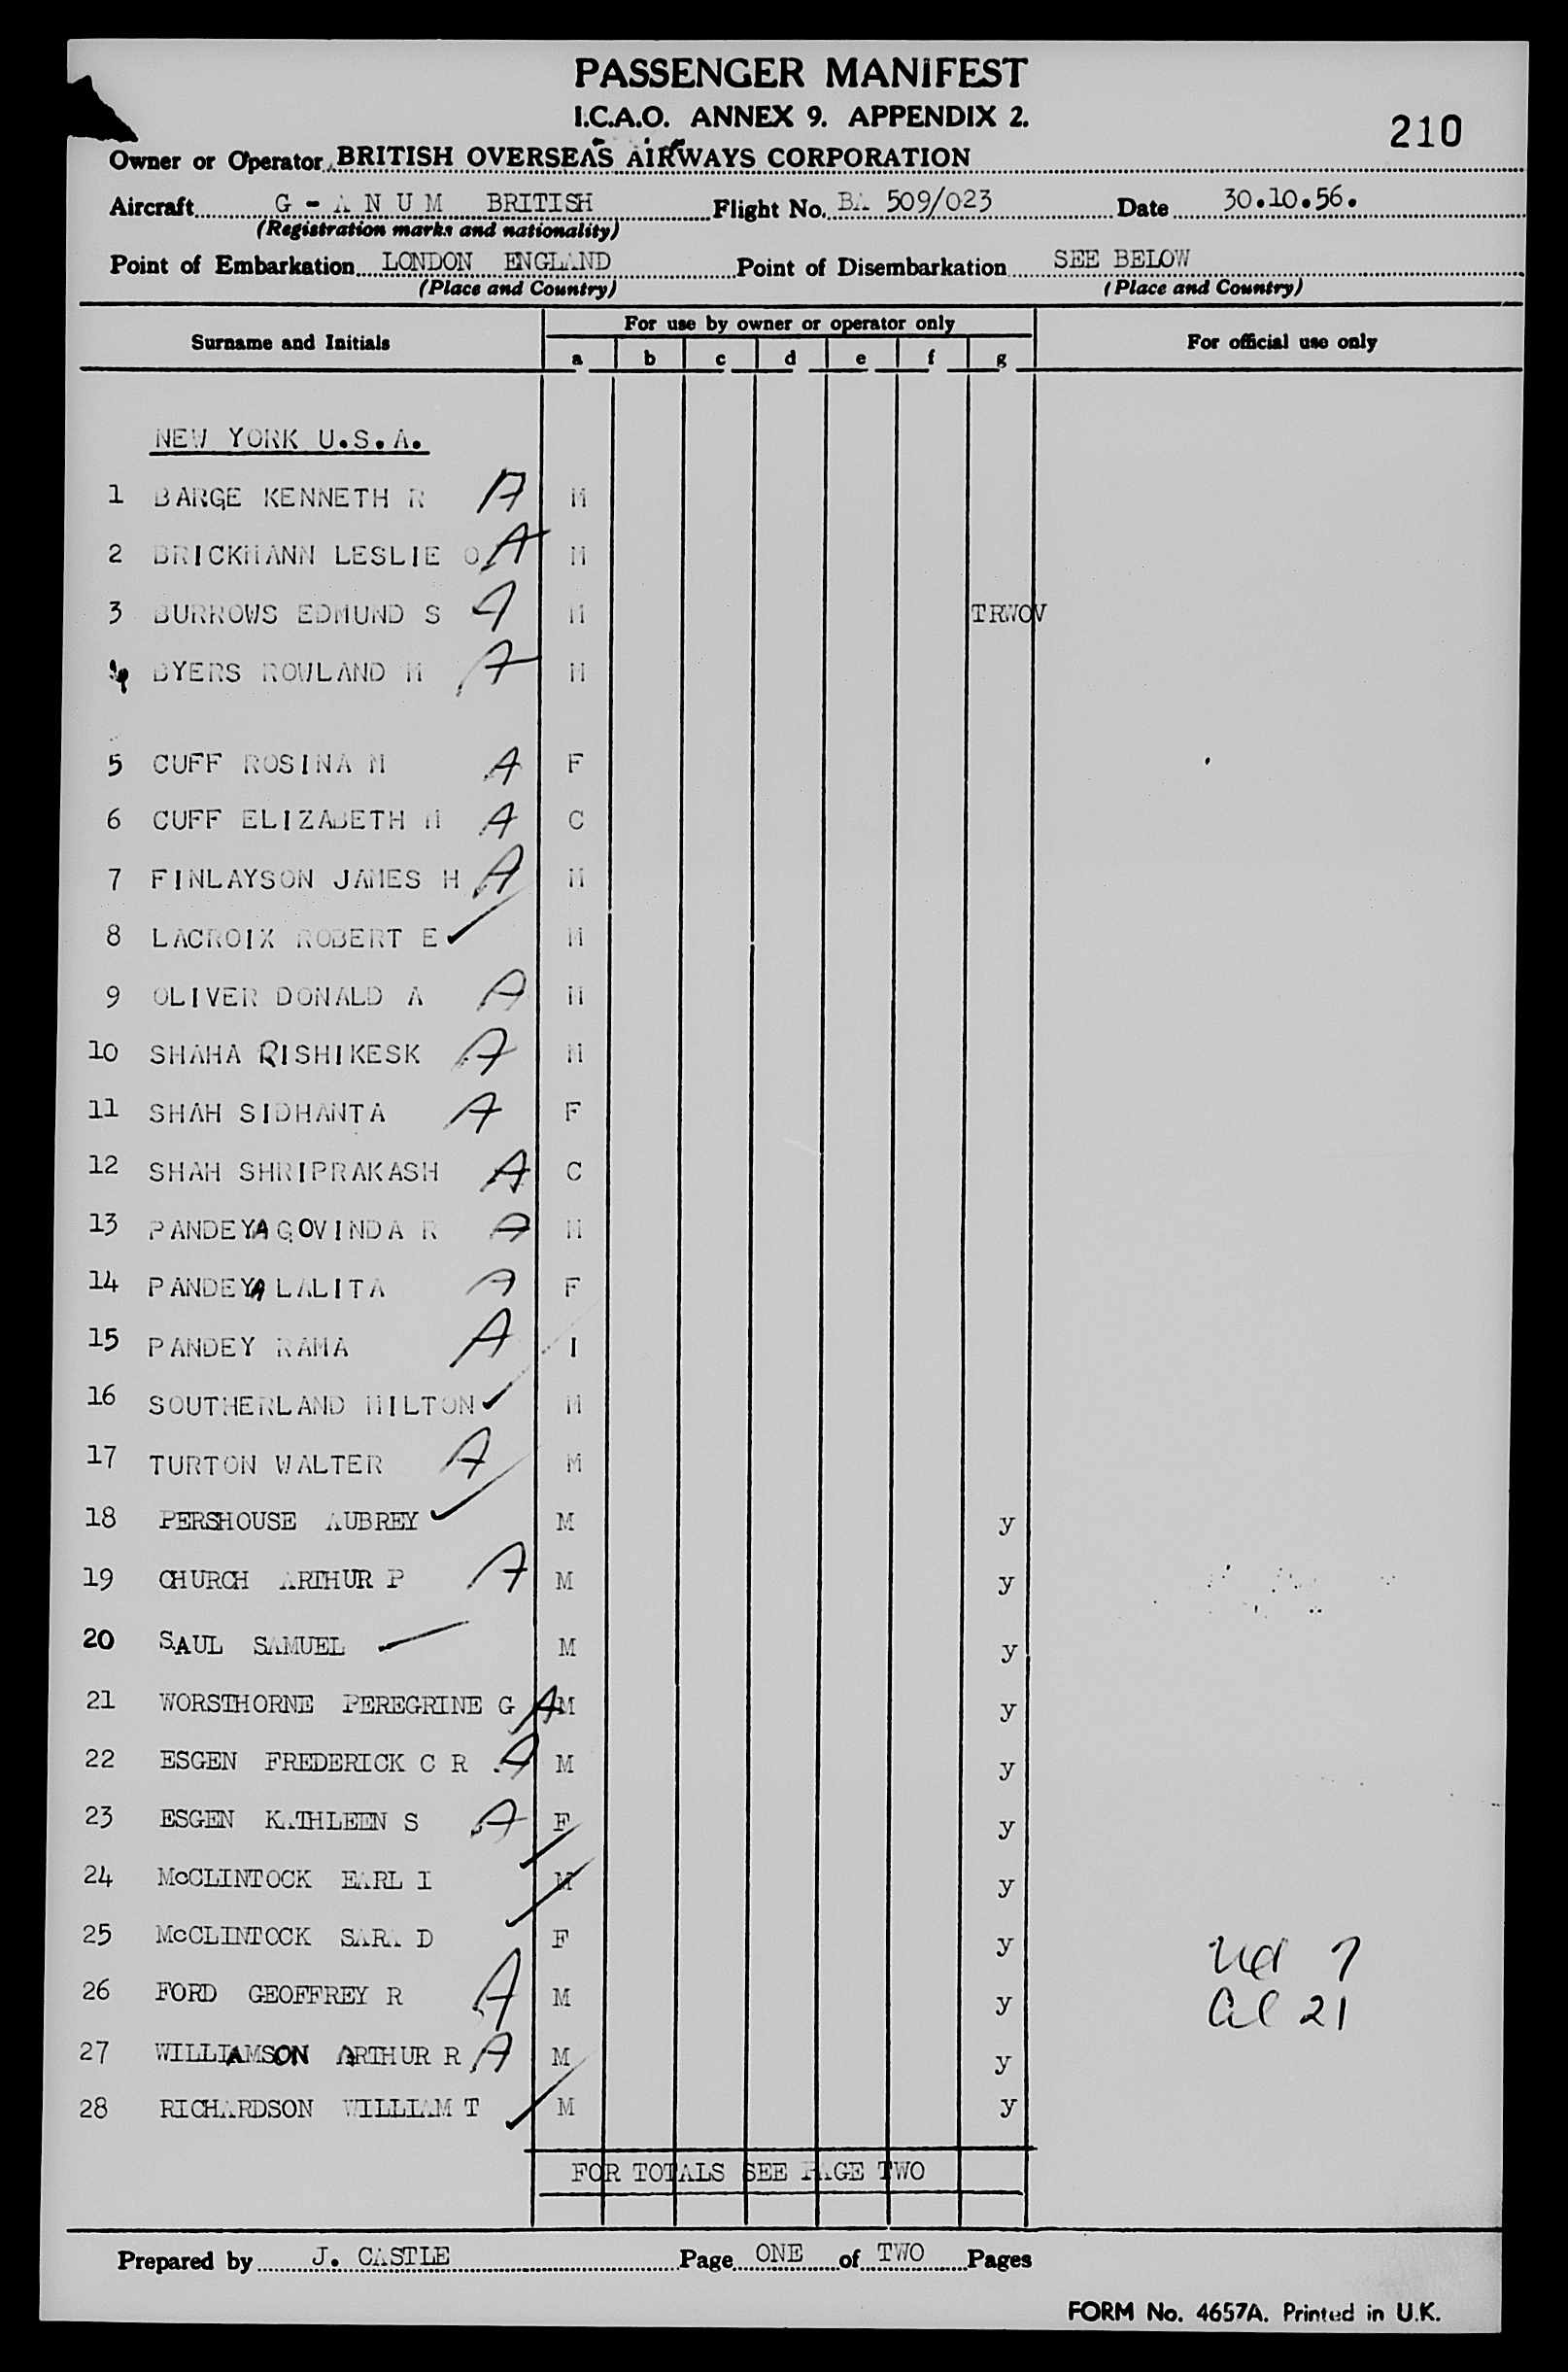 PASSENGER MANIFEST
I.C.A.O. ANNEX 9. APPENDIX 2.
210
Owner or Operator BRITISH OVERSEAS AIRWAYS CORPORATION
Aircraft G - A N U M BRITISH Flight No. BA 509/023 Date 30.10.56.
(Registration marks and nationality)
Point of Embarkation LONDON ENGLAND Point of Disembarkation SEE BELOW
(Place and Country) (Place and Country)
Surname and Initials For use by owner or operator only For official use only
a b c d e f g
NEW YORK U.S.A.
1 BARGE KENNETH R A M
2 BRICKMANN LESLIE O A M
3 BURROWS EDMUND S A M TRWOV
4 BYERS ROWLAND M A M
5 CUFF ROSINA M A F
6 CUFF ELIZABETH M A C
7 FINLAYSON JAMES H A M
8 LACROIX ROBERT E ✓ M
9 OLIVER DONALD A A M
10 SHAHA RISHIKESK A M
11 SHAH SIDHANTA A F
12 SHAH SHRIPRAKASH A C
13 PANDEYA GOVINDA R A M
14 PANDEYA LALITA A F
15 PANDEY RAMA A I
16 SOUTHERLAND MILTON ✓ M
17 TURTON WALTER A M
18 PERSHOUSE AUBREY ✓ M y
19 CHURCH ARTHUR P A M y
20 SAUL SAMUEL M y
21 WORSTHORNE PEREGRINE G A M y
22 ESGEN FREDERICK C R A M y
23 ESGEN KATHLEEN S A F y
24 McCLINTOCK EARL I ✓ M y
25 McCLINTOCK SARA D ✓ F y
26 FORD GEOFFREY R A M y
27 WILLIAMSON ARTHUR R A M y
28 RICHARDSON WILLIAM T ✓ M y
7
al 21
FOR TOTALS SEE PAGE TWO
Prepared by J. CASTLE Page ONE of TWO Pages
FORM No. 4657A. Printed in U.K.